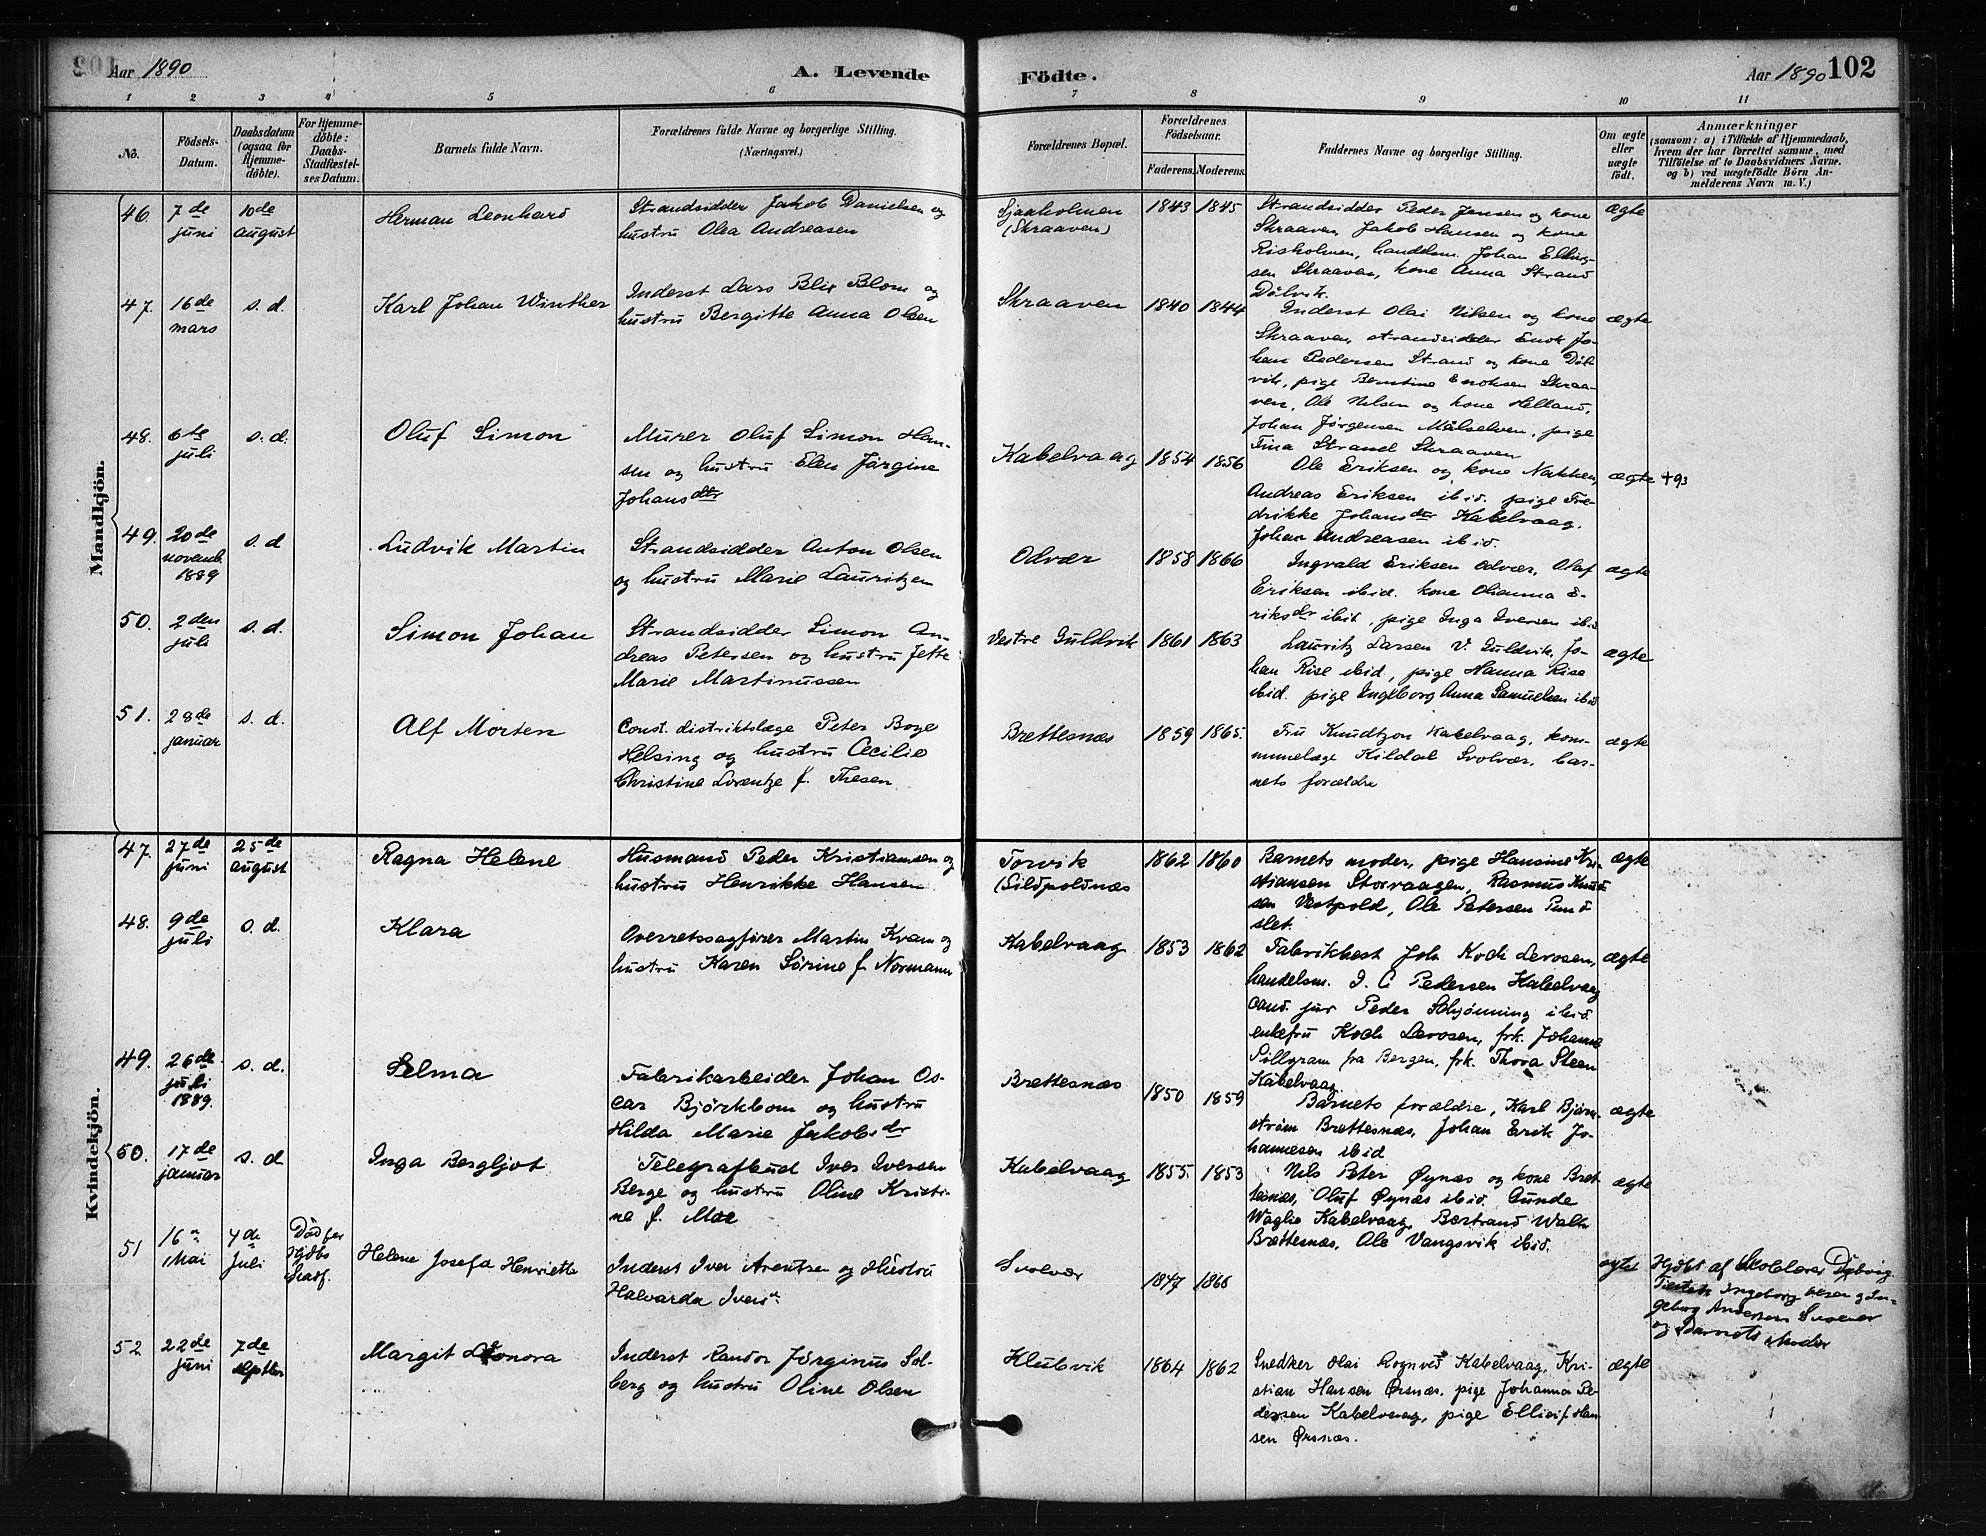 Aar 1890
A. Levende
Födte.
Aar 1890
102
1 2 3 4 5 6 7 8 9 10 11
No.
Födsels-Datum.
Daabsdatum (ogsaa for Hjemme-döbte).
For Hjemme-döbte: Daabs-Stadfæstel-ses Datum.
Barnets fulde Navn.
Forældrenes fulde Navne og borgerlige Stilling. (Næringsvei.)
Forældrenes Bopæl.
Forældrenes Födselsaar.
Faderens. Moderens.
Faddernes Navne og borgerlige Stilling.
Om ægte eller uægte födt.
Anmærkninger
(saasom: a) i Tilfælde af Hjemmedaab,
hvem der har forrettet samme, med
Tilföielse af to Daabsvidners Navne.
og b) ved uægtefödte Börn An-
melderens Navn m. V.)
Mandkjön.
46. 7de juni
10de august
Herman Leonhard
Strandsidder Jakob Danielsen og
hustru Olea Andreasen
Sjaaholmen
(Skraaven)
1843 1845
Strandsidder Peder Jensen og kone
Skraaven, Jakob Hansen og kone
Risholmen, handelsm. Johan Elling-
sen Skraaven, kone Anna Strand
Dölvik.
ægte
47. 16de mars
s. d.
Karl Johan Winther
Inderst Lars Blix Blom og
hustru Bergitte Anna Olsen
Skraaven
1840 1844
Inderst Olai Nilsen og kone
Skraaven, strandsidder Enok Jo-
han Pedersen Strand og kone Döl-
vik, pige Berntine Enoksen Skraa-
ven, Ole Nilsen og kone Helland,
Johan Jörgensen Målselven, pige
Tina Strand Skraaven
ægte
48. 6te juli
s. d.
Oluf Simon
Murer Oluf Simon Han-
sen og hustru Elen Jørgine
Johansdtr
Kabelvaag
1854 1856
Ole Eriksen og kone Nakken,
Andreas Eriksen ibid. pige Fre-
drikke Johansdtr Kabelvaag,
Johan Andreasen ibid.
ægte
+93
49. 20de novemb. 1889
s. d
Ludvik Martin
Strandsidder Anton Olsen
og hustru Marie Lauritzen
Odvær
1858 1866
Ingvald Eriksen Odvær, Olaf
Eriksen ibid. kone Olianna E-
riksdr ibid, pige Inga Iversen ibid
ægte
50. 2den juli
s. d.
Simon Johan
Strandsidder Simon An-
dreas Petersen og hustru Jette
Marie Martinussen
Vestre Guldvik
1861 1863
Lauritz Larsen V. Guldvik, Jo-
han Rise ibid, pige Hanna Rise
ibid. pige Ingeborg Anna Samuelsen ibid
ægte
51. 28de januar
s. d.
Alf Morten
Const. distriktslæge Peter Boye
Helsing og hustru Cecilie
Christine Lorentze f. Thesen
Brettesnæs
1859 1865.
Fru Knudtzon Kabelvaag, kom-
munelæge Kildal Svolvær, bar-
nets forældre
ægte
Kvindekjön.
47. 27de juni
25de august
Ragna Helene
Husmand Peder Kristiansen og
hustru Henrikke Hansen
Torvik
(Sildpoldnæs
1862 1860
Barnets moder, pige Hansine Kri-
stiansen Storvaagen, Rasmus Knud-
sen Vestpold, Ole Petersen Pund-
slet.
ægte
48. 9de juli
s. d.
Klara
Overretssagfører Martin Kvam og
hustru Karen Sørine f. Normann
Kabelvaag
1853 1862
Fabrikbest Joh. Koch Lerosen,
handelsm. I. C Pedersen Kabelvaag
cand. jur Peder Schjønning ibid.
enkefru Koch Lerosen, frk. Johanne
fra Bergen, frk. Thora Steen
Kabelvaag
ægte
49. 26de juli 1889.
s. d.
Selma
Fabrikarbeider Johan Os-
car Bjørkbom og hustru
Hilda Marie Jakobsdr
Brettesnæs
1850 1859
Barnets forældre, Karl Bjørn-
strøm Brettesnæs, Johan Erik Jo-
hannesen ibid
ægte
50. 17de januar
s. d
Inga Bergljot
Telegrafbud Iver Iversen
Berge og hustru Oline Kristi-
ne f. Moe
Kabelvaag
1855. 1853
Nils Peter Øynæs og kone Bret-
tesnæs, Oluf Øynæs ibid. Gunde
Waglie Kabelvaag, Bertrand Walle
Brettesnæs, Ole Vangsvik ibid.
ægte
51 16 Mai
4de Juli
Död før Hjdbs Stadf.
Helene Josefa Henriette
Inderst Iver Arentsen og Hustru
Halvarda Ivers
Svolvær
1847 1866
ægte
Hjdbt af Skolelærer Dybvig
Ingeborg Olsen og In-
geborg Andersen Svolvær
og Barnets Moder
52 22de juni
7de septbr
Margit Leonora
Inderst Randor Jørginus Sol-
berg og hustru Oline Olsen
Klubvik
1864 1862
Snedker Olai Rognved Kabelvaag, Kri-
stian Hansen Ørsnæs. pige Johanna Pe-
dersen Kabelvaag, pige Ellioif Han-
sen Ørsnæs.
ægte